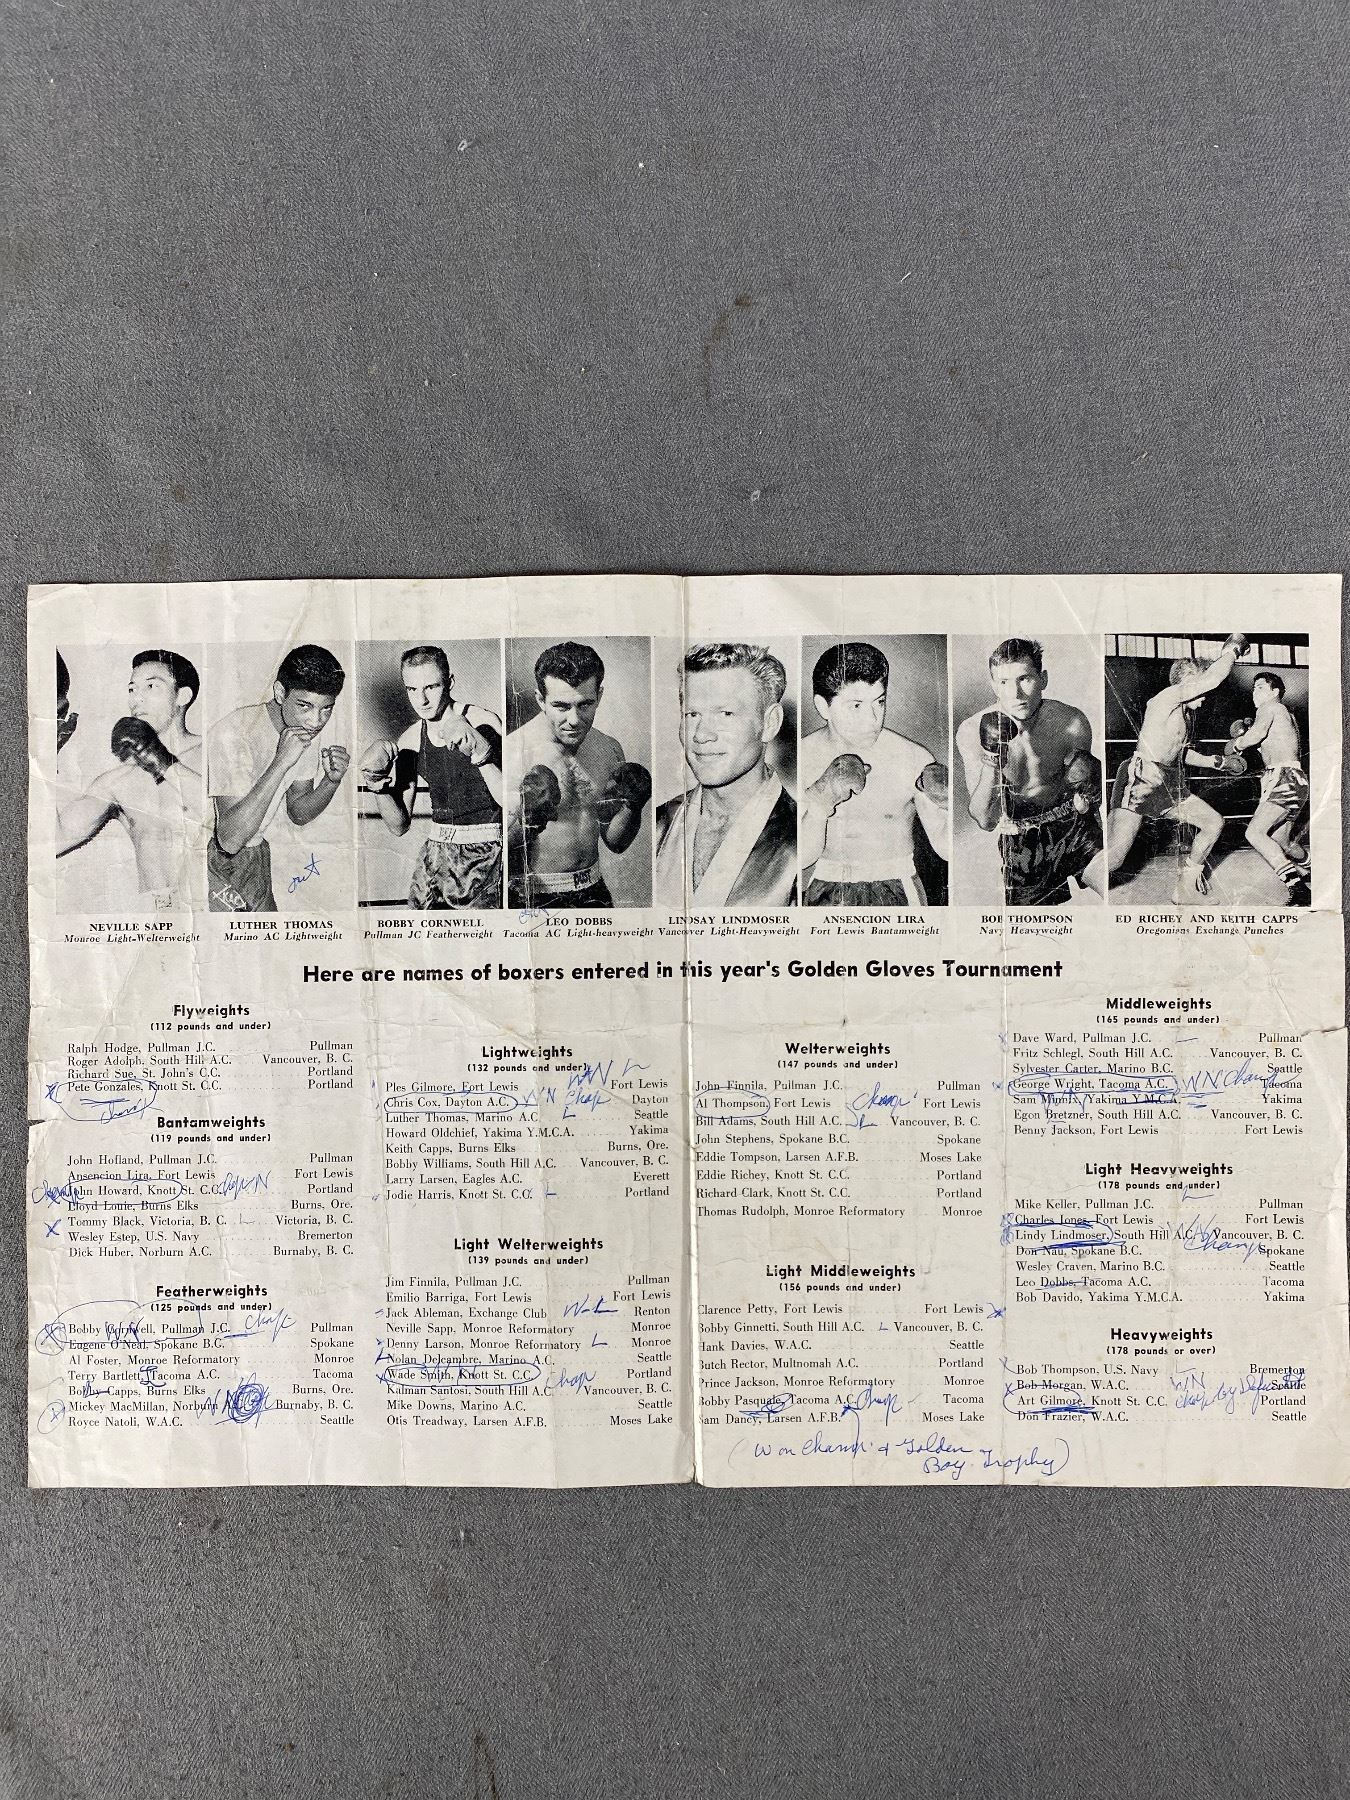 out
out
NEVILLE SAPP
Monroe Light-Welterweight
LUTHER THOMAS
Marino AC Lightweight
BOBBY CORNWELL
Pullman JC Featherweight
LEO DOBBS
Tacoma AC Light-heavyweight
LINDSAY LINDMOSER
Vancouver Light-Heavyweight
ANSENCION LIRA
Fort Lewis Bantamweight
BOB THOMPSON
Navy Heavyweight
ED RICHEY AND KEITH CAPPS
Oregonians Exchange Punches
Here are names of boxers entered in this year's Golden Gloves Tournament
Flyweights
(112 pounds and under)
Ralph Hodge, Pullman J.C. Pullman
Roger Adolph, South Hill A.C. Vancouver, B. C.
Richard Sue, St. John's C.C. Portland
Pete Gonzales, Knott St. C.C. Portland
Champ
Bantamweights
(119 pounds and under)
John Hofland, Pullman J.C. Pullman
Ansencion Lira, Fort Lewis Fort Lewis
John Howard, Knott St. C.C. Portland
Lloyd Louie, Burns Elks Burns, Ore.
Tommy Black, Victoria, B. C. L Victoria, B. C.
Wesley Estep, U.S. Navy Bremerton
Dick Huber, Norburn A.C. Burnaby, B. C.
Featherweights
(125 pounds and under)
Bobby Cornwell, Pullman J.C. Champ Pullman
Eugene O'Neal, Spokane B.C. Spokane
Al Foster, Monroe Reformatory Monroe
Terry Bartlett, Tacoma A.C. Tacoma
Bobby Capps, Burns Elks Burns, Ore.
Mickey MacMillan, Norburn A.C. Burnaby, B. C.
Royce Natoli, W.A.C. Seattle
Lightweights
(132 pounds and under)
Ples Gilmore, Fort Lewis Fort Lewis
Chris Cox, Dayton A.C. WN Champ Dayton
Luther Thomas, Marino A.C. L Seattle
Howard Oldchief, Yakima Y.M.C.A. Yakima
Keith Capps, Burns Elks Burns, Ore.
Bobby Williams, South Hill A.C. Vancouver, B. C.
Larry Larsen, Eagles A.C. Everett
Jodie Harris, Knott St. C.C. L Portland
Light Welterweights
(139 pounds and under)
Jim Finnila, Pullman J.C. Pullman
Emilio Barriga, Fort Lewis Fort Lewis
Jack Ableman, Exchange Club Renton
Neville Sapp, Monroe Reformatory Monroe
Denny Larson, Monroe Reformatory L Monroe
Nolan Delcambre, Marino A.C. Seattle
Wade Smith, Knott St. C.C. Champ Portland
Kalman Santosi, South Hill A.C. Vancouver, B. C.
Mike Downs, Marino A.C. Seattle
Otis Treadway, Larsen A.F.B. Moses Lake
Welterweights
(147 pounds and under)
John Finnila, Pullman J.C. Pullman
Al Thompson, Fort Lewis Champ Fort Lewis
Bill Adams, South Hill A.C. L Vancouver, B. C.
John Stephens, Spokane B.C. Spokane
Eddie Tompson, Larsen A.F.B. Moses Lake
Eddie Richey, Knott St. C.C. Portland
Richard Clark, Knott St. C.C. Portland
Thomas Rudolph, Monroe Reformatory Monroe
Light Middleweights
(156 pounds and under)
Clarence Petty, Fort Lewis Fort Lewis
Bobby Ginnetti, South Hill A.C. L Vancouver, B. C.
Hank Davies, W.A.C. Seattle
Butch Rector, Multnomah A.C. Portland
Prince Jackson, Monroe Reformatory Monroe
Bobby Pasquale, Tacoma A.C. Champ Tacoma
Sam Dancy, Larsen A.F.B. Moses Lake
(Won Champ & Golden
Boy Trophy)
Middleweights
(165 pounds and under)
Dave Ward, Pullman J.C. L Pullman
Fritz Schlegl, South Hill A.C. Vancouver, B. C.
Sylvester Carter, Marino B.C. Seattle
George Wright, Tacoma A.C. WN Champ Tacoma
Sam Minnix, Yakima Y.M.C.A. Yakima
Egon Bretzner, South Hill A.C. Vancouver, B. C.
Benny Jackson, Fort Lewis Fort Lewis
Light Heavyweights
(178 pounds and under)
Mike Keller, Pullman J.C. L Pullman
Charles Jones, Fort Lewis Fort Lewis
Lindy Lindmoser, South Hill A.C. Vancouver, B. C.
Don Nau, Spokane B.C. Champ Spokane
Wesley Craven, Marino B.C. Seattle
Leo Dobbs, Tacoma A.C. Tacoma
Bob Davido, Yakima Y.M.C.A. Yakima
Heavyweights
(178 pounds or over)
Bob Thompson, U.S. Navy L Bremerton
Bob Morgan, W.A.C. WN Seattle
Art Gilmore, Knott St. C.C. Champ by Default Portland
Don Frazier, W.A.C. Seattle